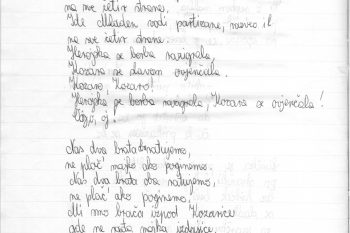 na sve četir strane,
Ide Mladen vodi partizane, razvio ih
na sve četir strane.
Herojska se borba razigrala,
Kozara se slavom ovjenčala.
Kozaro, Kozaro!
Herojska se borba razigrala, Kozara se ovjenčala!
oj!
Nas dva brata oba ratujemo,
ne plač' majko ako poginemo.
Nas dva brata oba ratujemo,
ne plač' ako poginemo.
Mi smo braća ispod Kozarice
gdje ne rađa majka izdajice